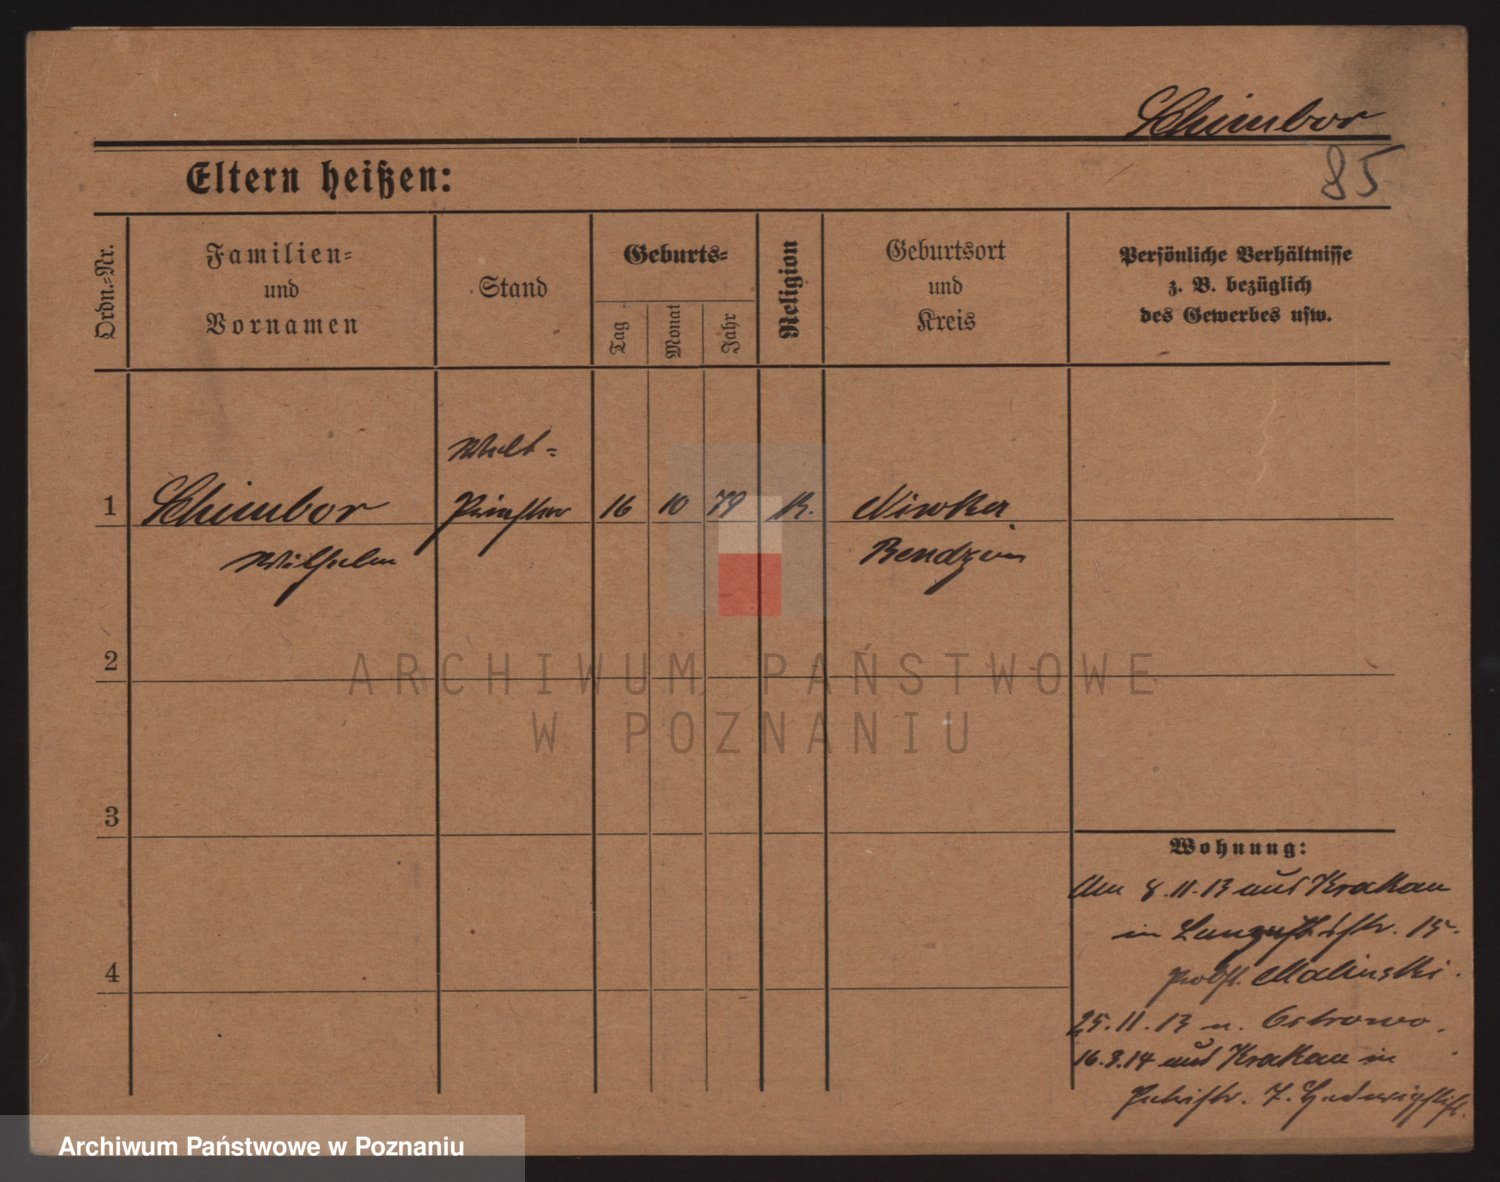 Schimbor
85
Eltern heißen:
Ordn.-Nr.
Familien-
und
Vornamen
Stand
Geburts-
Tag
Monat
Jahr
Religion
Geburtsort
und
Kreis
Persönliche Verhältnisse
z. B. bezüglich
des Gewerbes usw.
Welt-
1 Schimbor Priester 16 10 79 K. Niwka
Wilhelm Bendzin
2
3
4
Wohnung:
Am 8.11.13 aus Krakau
in str. 15.
Probst. Malinski.
25.11.13 n. Ostrowo.
16.3.14 aus Krakau in
Petristr. 7. Hedwigstift.
ARCHIWUM PAŃSTWOWE
W POZNANIU
Archiwum Państwowe w Poznaniu